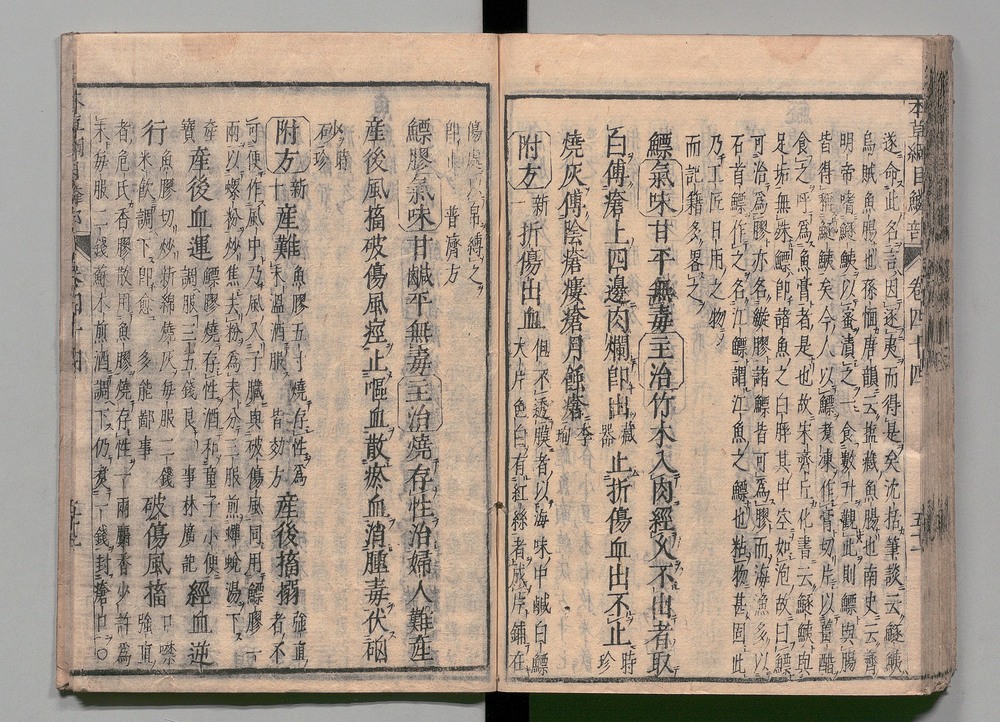 本草綱目鱗部 卷四十四 五十二
遂命此名言因逐夷而得是矣沈括筆談云鱁鮧
烏賊魚腸也孫愐唐韻云鹽藏魚腸也南史云齊
明帝嗜鱁鮧以蜜漬之一食數升觀此則鰾與腸
皆得稱鱁鮧矣今人以鰾煮凍作膏切片以薑醋
食之呼爲魚膏者是也故宋齊丘化書云鱁鮧與
足垢無殊鰾卽諸魚之白脬其中空如泡故曰鰾
可治爲膠亦名縼膠諸鰾皆可爲膠而海漁多以
石首鰾作之名江鰾謂江魚之鰾也粘物甚固此
乃工匠日用之物
而記籍多畧之
鰾氣味甘平無毒主治竹木入肉經久不出者取
白傅瘡上四邊肉爛卽出藏器止折傷血出不止時珍
燒灰傅陰瘡瘻瘡月蝕瘡李珣
附方新一折傷出血但不透膜者以海味中鹹白鰾
大片色白有紅絲者成片鋪在
傷處以帛縛之
卽止普濟方
鰾膠氣味甘鹹平無毒主治燒存性治婦人難產
產後風搐破傷風痙止嘔血散瘀血消腫毒伏硇
砂時珍
附方新十產難魚膠五寸燒存性爲末溫酒服皆効方產後搐搦強直者不
可便作風中乃風入子臟與破傷風同用鰾膠一
兩以螺粉炒焦去粉爲末分三服煎蟬蛻湯下產
寶產後血運鰾膠燒存性酒和童子小便調服三五錢良事林廣記經血逆
行魚膠切炒新綿燒灰每服二錢米飲調下卽愈多能鄙事破傷風搐口噤強直
者危氏香膠散用魚膠燒存性一兩麝香少許爲
末每服二錢蘇木煎酒調下仍煮一錢封瘡口○